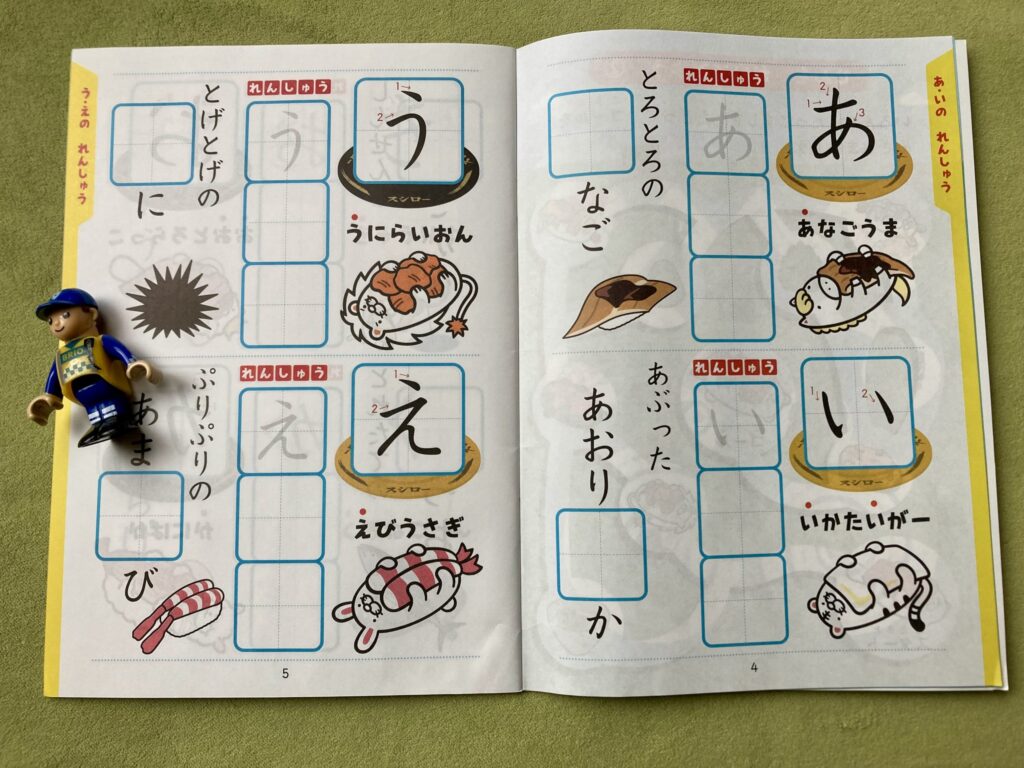 あ・いの れんしゅう
あ
1→
2↓
3
スシロー
れんしゅう
あ
とろとろの
なご
あなごうま
い
1
2
スシロー
れんしゅう
い
あぶった
あおり
か
いかたいがー
4
う・えの れんしゅう
う
1→
2→
スシロー
れんしゅう
う
とげとげの
に
うにらいおん
え
1→
2→
スシロー
れんしゅう
え
ぷりぷりの
あま
び
えびうさぎ
5
BRIO